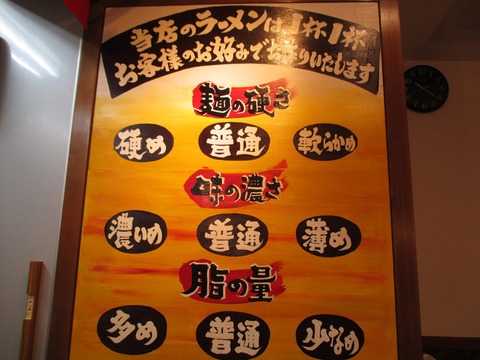 当店のラーメンは1杯1杯
お客様のお好みでお作りいたします
麺の硬さ
硬め 普通 軟らかめ
味の濃さ
濃いめ 普通 薄め
脂の量
多め 普通 少なめ